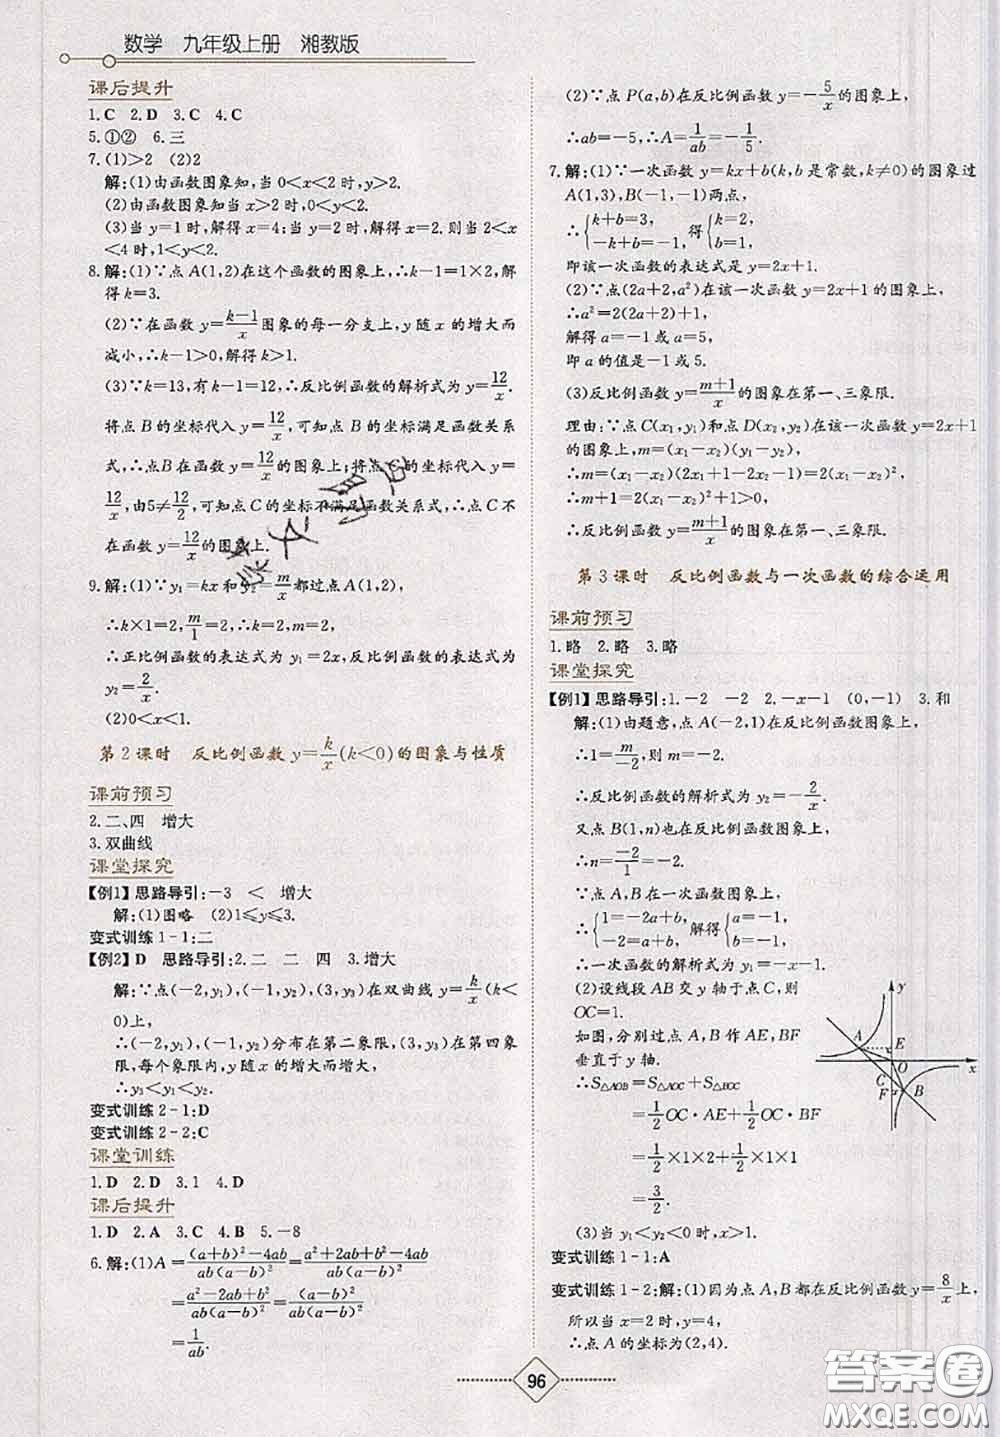 数学 九年级上册 湘教版
课后提升
1.C 2.D 3.C 4.C
5.①② 6.三
7.(1)>2 (2)2
解:(1)由函数图象知,当0<x<2时,y>2.
(2)由函数图象知当x>2时,0<y<2.
(3)当y=1时,解得x=4;当y=2时,解得x=2.则当2<x
<4时,1<y<2.
8.解:(1)∵点A(1,2)在这个函数的图象上,∴k-1=1×2,解
得k=3.
(2)∵在函数y=\frac{k-1}{x}图象的每一分支上,y随x的增大而
减小,∴k-1>0,解得k>1.
(3)∵k=13,有k-1=12,∴反比例函数的解析式为y=\frac{12}{x}.
将点B的坐标代入y=\frac{12}{x},可知点B的坐标满足函数关系
式,∴点B在函数y=\frac{12}{x}的图象上;将点C的坐标代入y=
\frac{12}{x},由5≠\frac{12}{2},可知点C的坐标不满足函数关系式,∴点C不
在函数y=\frac{12}{x}的图象上.
9.解:(1)∵y₁=kx和y₂=\frac{m}{x}都过点A(1,2),
∴k×1=2,\frac{m}{1}=2,∴k=2,m=2,
∴正比例函数的表达式为y₁=2x,反比例函数的表达式为
y₂=\frac{2}{x}.
(2)0<x<1.
第2课时 反比例函数y=\frac{k}{x}(k<0)的图象与性质
课前预习
2.二、四 增大
3.双曲线
课堂探究
【例1】思路导引:-3 < 增大
解:(1)图略 (2)1≤y≤3.
变式训练1-1:二
【例2】D 思路导引:2.二 二 四 3.增大
解:∵点(-2,y₁),(-1,y₂),(3,y₃)在双曲线y=\frac{k}{x}(k<
0)上,
∴(-2,y₁),(-1,y₂)分布在第二象限,(3,y₃)在第四象
限,每个象限内,y随x的增大而增大,
∴y₃<y₁<y₂.
变式训练2-1:D
变式训练2-2:C
课堂训练
1.D 2.D 3.1 4.D
课后提升
1.D 2.A 3.C 4.B 5.-8
6.解:(1)A=\frac{(a+b)²-4ab}{ab(a-b)²}=\frac{a²+2ab+b²-4ab}{ab(a-b)²}
=\frac{a²-2ab+b²}{ab(a-b)²}=\frac{(a-b)²}{ab(a-b)²}
=\frac{1}{ab}.
(2)∵点P(a,b)在反比例函数y=-\frac{5}{x}的图象上,
∴ab=-5,∴A=\frac{1}{ab}=-\frac{1}{5}.
7.解:(1)∵一次函数y=kx+b(k,b是常数,k≠0)的图象过
A(1,3),B(-1,-1)两点,
∴{k+b=3, 得{k=2,
-k+b=-1, b=1,
即该一次函数的表达式是y=2x+1.
(2)∵点(2a+2,a²)在该一次函数y=2x+1的图象上,
∴a²=2(2a+2)+1,
解得a=-1或a=5,
即a的值是-1或5.
(3)反比例函数y=\frac{m+1}{x}的图象在第一、三象限.
理由:∵点C(x₁,y₁)和点D(x₂,y₂)在该一次函数y=2x+1
的图象上,m=(x₁-x₂)(y₁-y₂),
∴m=(x₁-x₂)(2x₁+1-2x₂-1)=2(x₁-x₂)²,
∴m+1=2(x₁-x₂)²+1>0,
∴反比例函数y=\frac{m+1}{x}的图象在第一、三象限.
第3课时 反比例函数与一次函数的综合运用
课前预习
1.略 2.略 3.略
课堂探究
【例1】思路导引:1.-2 -2 2.-x-1 (0,-1) 3.和
解:(1)由题意,点A(-2,1)在反比例函数图象上,
∴1=\frac{m}{-2},m=-2.
∴反比例函数的解析式为y₂=-\frac{2}{x}.
又点B(1,n)也在反比例函数图象上,
∴n=\frac{-2}{1}=-2.
∵点A,B在一次函数图象上,
∴{1=-2a+b, 解得{a=-1,
-2=a+b, b=-1.
∴一次函数的解析式为y₁=-x-1.
(2)设线段AB交y轴于点C,则
OC=1.
如图,分别过点A,B作AE,BF
垂直于y轴.
∴S△AOB=S△AOC+S△BOC
=\frac{1}{2}OC·AE+\frac{1}{2}OC·BF
=\frac{1}{2}×1×2+\frac{1}{2}×1×1
=\frac{3}{2}.
y
A
E
O
x
C
F
B
(3)当y₁<y₂<0时,x>1.
变式训练1-1:A
变式训练1-2:解:(1)因为点A,B都在反比例函数y=\frac{8}{x}上,
所以当x=2时,y=4,
∴点A的坐标为(2,4).
96
答案圈
MXQE.COM